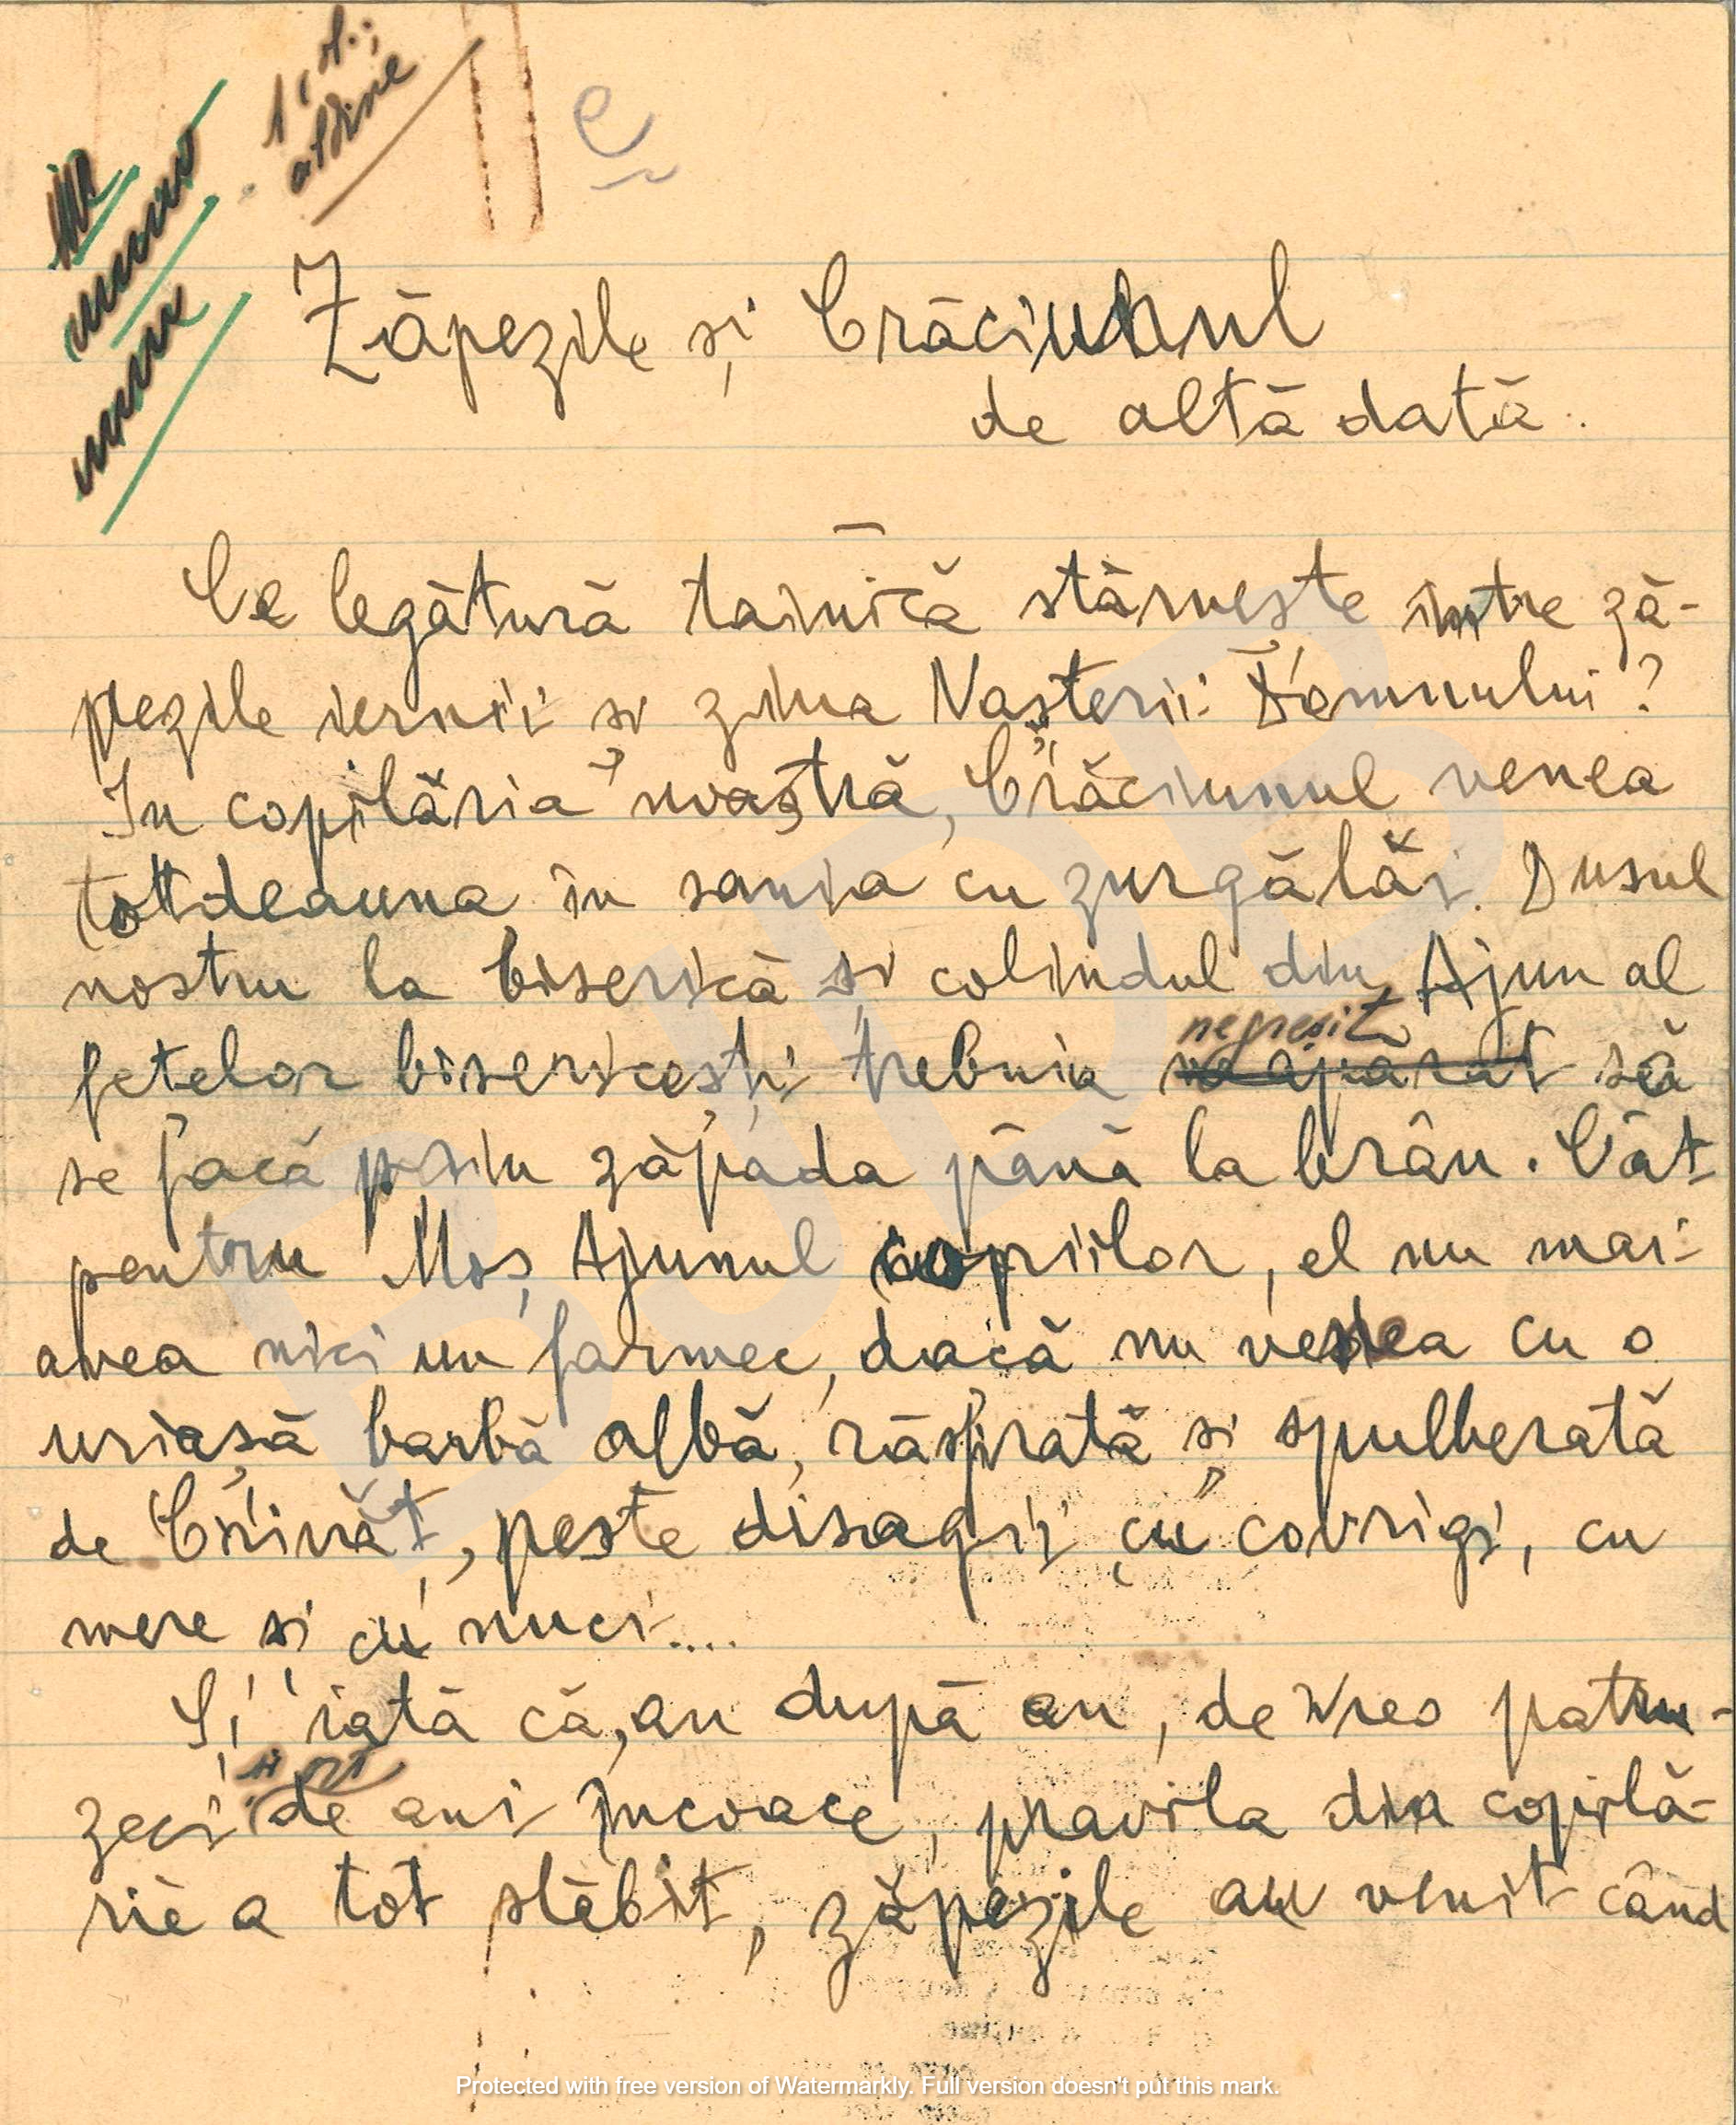 1 col.;
aldine
e
Zăpezile și Crăciunul
de altă dată.
Ce legătură tainică stărnește între ză-
pezile iernii și ziua Nașterii Domnului?
In copilăria noastră, Crăciunul venea
totdeauna în sania cu zurgălăi. Dusul
nostru la biserică și colindul din Ajun al
negreșit
fetelor bisericești trebuia neapărat să
se facă prin zăpada până la brâu. Cât
pentru Moș Ajunul copiilor, el nu mai
avea nici un farmec, dacă nu venea cu o
uriașă barbă albă, răsfirată și spulberată
de Crivăț, peste disagii cu covrigi, cu
mere și cu nuci....
Și iată că, an după an, de vreo patru-
zeci de ani încoace, pravila din copilă-
rie a tot slăbit, zăpezile au venit când
Protected with free version of Watermarkly. Full version doesn't put this mark.